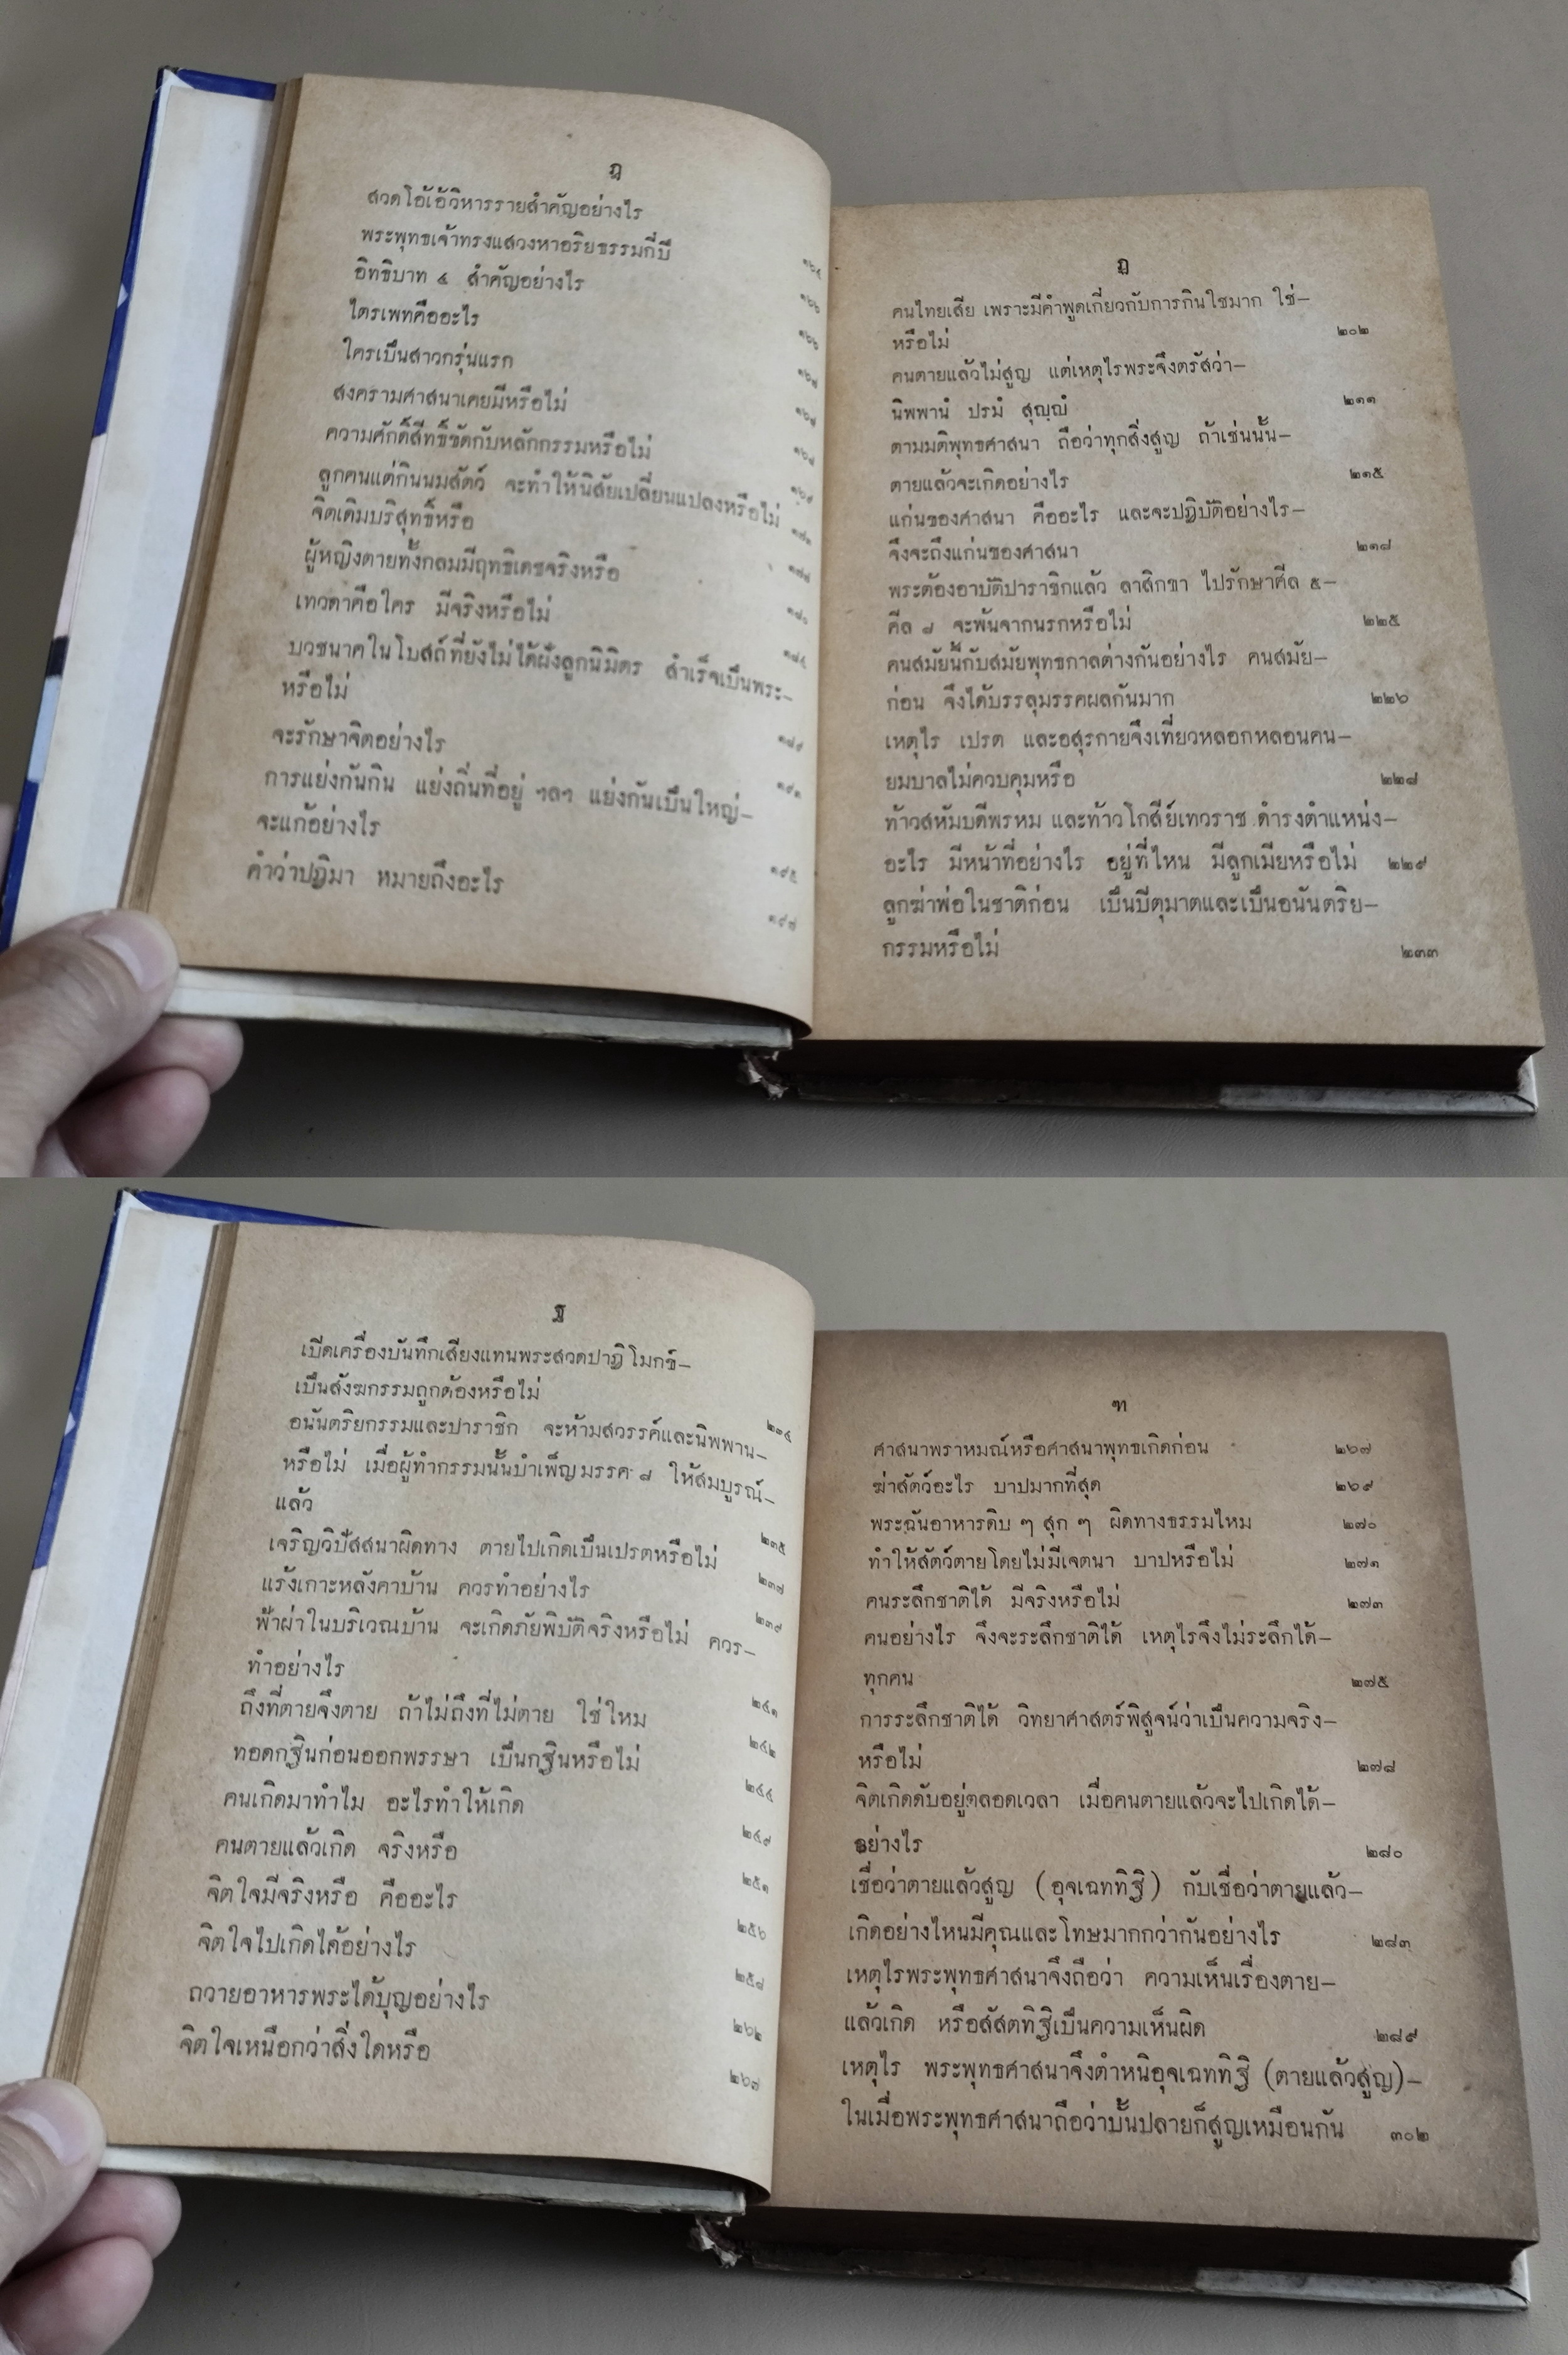 ฎ
สวดโอ้เอ้วิหารรายสำคัญอย่างไร ๑๖๔
พระพุทธเจ้าทรงแสวงหาอริยธรรมกี่ปี ๑๖๖
อิทธิบาท ๔ สำคัญอย่างไร ๑๖๖
ไตรเพทคืออะไร
ใครเป็นสาวกรุ่นแรก
สงครามศาสนาเคยมีหรือไม่
ความศักดิ์สิทธิ์ขัดกับหลักกรรมหรือไม่ ๑๖๙
ลูกคนแต่กินนมสัตว์ จะทำให้นิสัยเปลี่ยนแปลงหรือไม่
จิตเดิมบริสุทธิ์หรือ
ผู้หญิงตายทั้งกลมมีฤทธิเดชจริงหรือ ๑๘๐
เทวดาคือใคร มีจริงหรือไม่ ๑๘๔
บวชนาคในโบสถ์ที่ยังไม่ได้ฝังลูกนิมิตร สำเร็จเป็นพระ—
หรือไม่ ๑๘๙
จะรักษาจิตอย่างไร ๑๙๓
การแย่งกันกิน แย่งถิ่นที่อยู่ ฯลฯ แย่งกันเป็นใหญ่—
จะแก้อย่างไร ๑๙๕
คำว่าปฏิมา หมายถึงอะไร ๑๙๗
ฏ
คนไทยเสีย เพราะมีคำพูดเกี่ยวกับการกินใชมาก ใช่—
หรือไม่ ๒๐๒
คนตายแล้วไม่สูญ แต่เหตุไรพระจึงตรัสว่า—
นิพพานํ ปรมํ สุญฺญํ ๒๑๑
ตามมติพุทธศาสนา ถือว่าทุกสิ่งสูญ ถ้าเช่นนั้น—
ตายแล้วจะเกิดอย่างไร ๒๑๕
แก่นของศาสนา คืออะไร และจะปฏิบัติอย่างไร—
จึงจะถึงแก่นของศาสนา ๒๑๘
พระต้องอาบัติปาราชิกแล้ว ลาสิกขา ไปรักษาศีล ๕—
ศีล ๘ จะพ้นจากนรกหรือไม่ ๒๒๕
คนสมัยนี้กับสมัยพุทธกาลต่างกันอย่างไร คนสมัย—
ก่อน จึงได้บรรลุมรรคผลกันมาก ๒๒๖
เหตุไร เปรต และอสุรกายจึงเที่ยวหลอกหลอนคน—
ยมบาลไม่ควบคุมหรือ ๒๒๘
ท้าวสหัมบดีพรหม และท้าวโกสีย์เทวราช ดำรงตำแหน่ง—
อะไร มีหน้าที่อย่างไร อยู่ที่ไหน มีลูกเมียหรือไม่ ๒๒๙
ลูกฆ่าพ่อในชาติก่อน เป็นปิตุมาตและเป็นอนันตริย—
กรรมหรือไม่ ๒๓๓
ฐ
เปิดเครื่องบันทึกเสียงแทนพระสวดปาฏิโมกข์—
เป็นสังฆกรรมถูกต้องหรือไม่ ๒๓๔
อนันตริยกรรมและปาราชิก จะห้ามสวรรค์และนิพพาน—
หรือไม่ เมื่อผู้ทำกรรมนั้นบำเพ็ญมรรค ๘ ให้สมบูรณ์—
แล้ว ๒๓๕
เจริญวิปัสสนาผิดทาง ตายไปเกิดเป็นเปรตหรือไม่ ๒๓๗
แร้งเกาะหลังคาบ้าน ควรทำอย่างไร ๒๓๙
ฟ้าผ่าในบริเวณบ้าน จะเกิดภัยพิบัติจริงหรือไม่ ควร—
ทำอย่างไร ๒๔๑
ถึงที่ตายจึงตาย ถ้าไม่ถึงที่ไม่ตาย ใช่ไหม ๒๔๒
ทอดกฐินก่อนออกพรรษา เป็นกฐินหรือไม่ ๒๔๔
คนเกิดมาทำไม อะไรทำให้เกิด ๒๔๙
คนตายแล้วเกิด จริงหรือ ๒๕๑
จิตใจมีจริงหรือ คืออะไร ๒๕๖
จิตใจไปเกิดได้อย่างไร ๒๕๘
ถวายอาหารพระได้บุญอย่างไร ๒๖๒
จิตใจเหนือกว่าสิ่งใดหรือ ๒๖๓
ฑ
ศาสนาพราหมณ์หรือศาสนาพุทธเกิดก่อน ๒๖๗
ฆ่าสัตว์อะไร บาปมากที่สุด ๒๖๙
พระฉันอาหารดิบ ๆ สุก ๆ ผิดทางธรรมไหม ๒๗๐
ทำให้สัตว์ตายโดยไม่มีเจตนา บาปหรือไม่ ๒๗๑
คนระลึกชาติได้ มีจริงหรือไม่ ๒๗๓
คนอย่างไร จึงจะระลึกชาติได้ เหตุไรจึงไม่ระลึกได้—
ทุกคน ๒๗๕
การระลึกชาติได้ วิทยาศาสตร์พิสูจน์ว่าเป็นความจริง—
หรือไม่ ๒๗๘
จิตเกิดดับอยู่ตลอดเวลา เมื่อคนตายแล้วจะไปเกิดได้—
อย่างไร ๒๘๐
เชื่อว่าตายแล้วสูญ (อุจเฉททิฐิ) กับเชื่อว่าตายแล้ว—
เกิดอย่างไหนมีคุณและโทษมากกว่ากันอย่างไร ๒๘๓
เหตุไรพระพุทธศาสนาจึงถือว่า ความเห็นเรื่องตาย—
แล้วเกิด หรือสัสตทิฐิเป็นความเห็นผิด ๒๘๙
เหตุไร พระพุทธศาสนาจึงตำหนิอุจเฉททิฐิ (ตายแล้วสูญ)—
ในเมื่อพระพุทธศาสนาถือว่าบั้นปลายก็สูญเหมือนกัน ๓๐๒